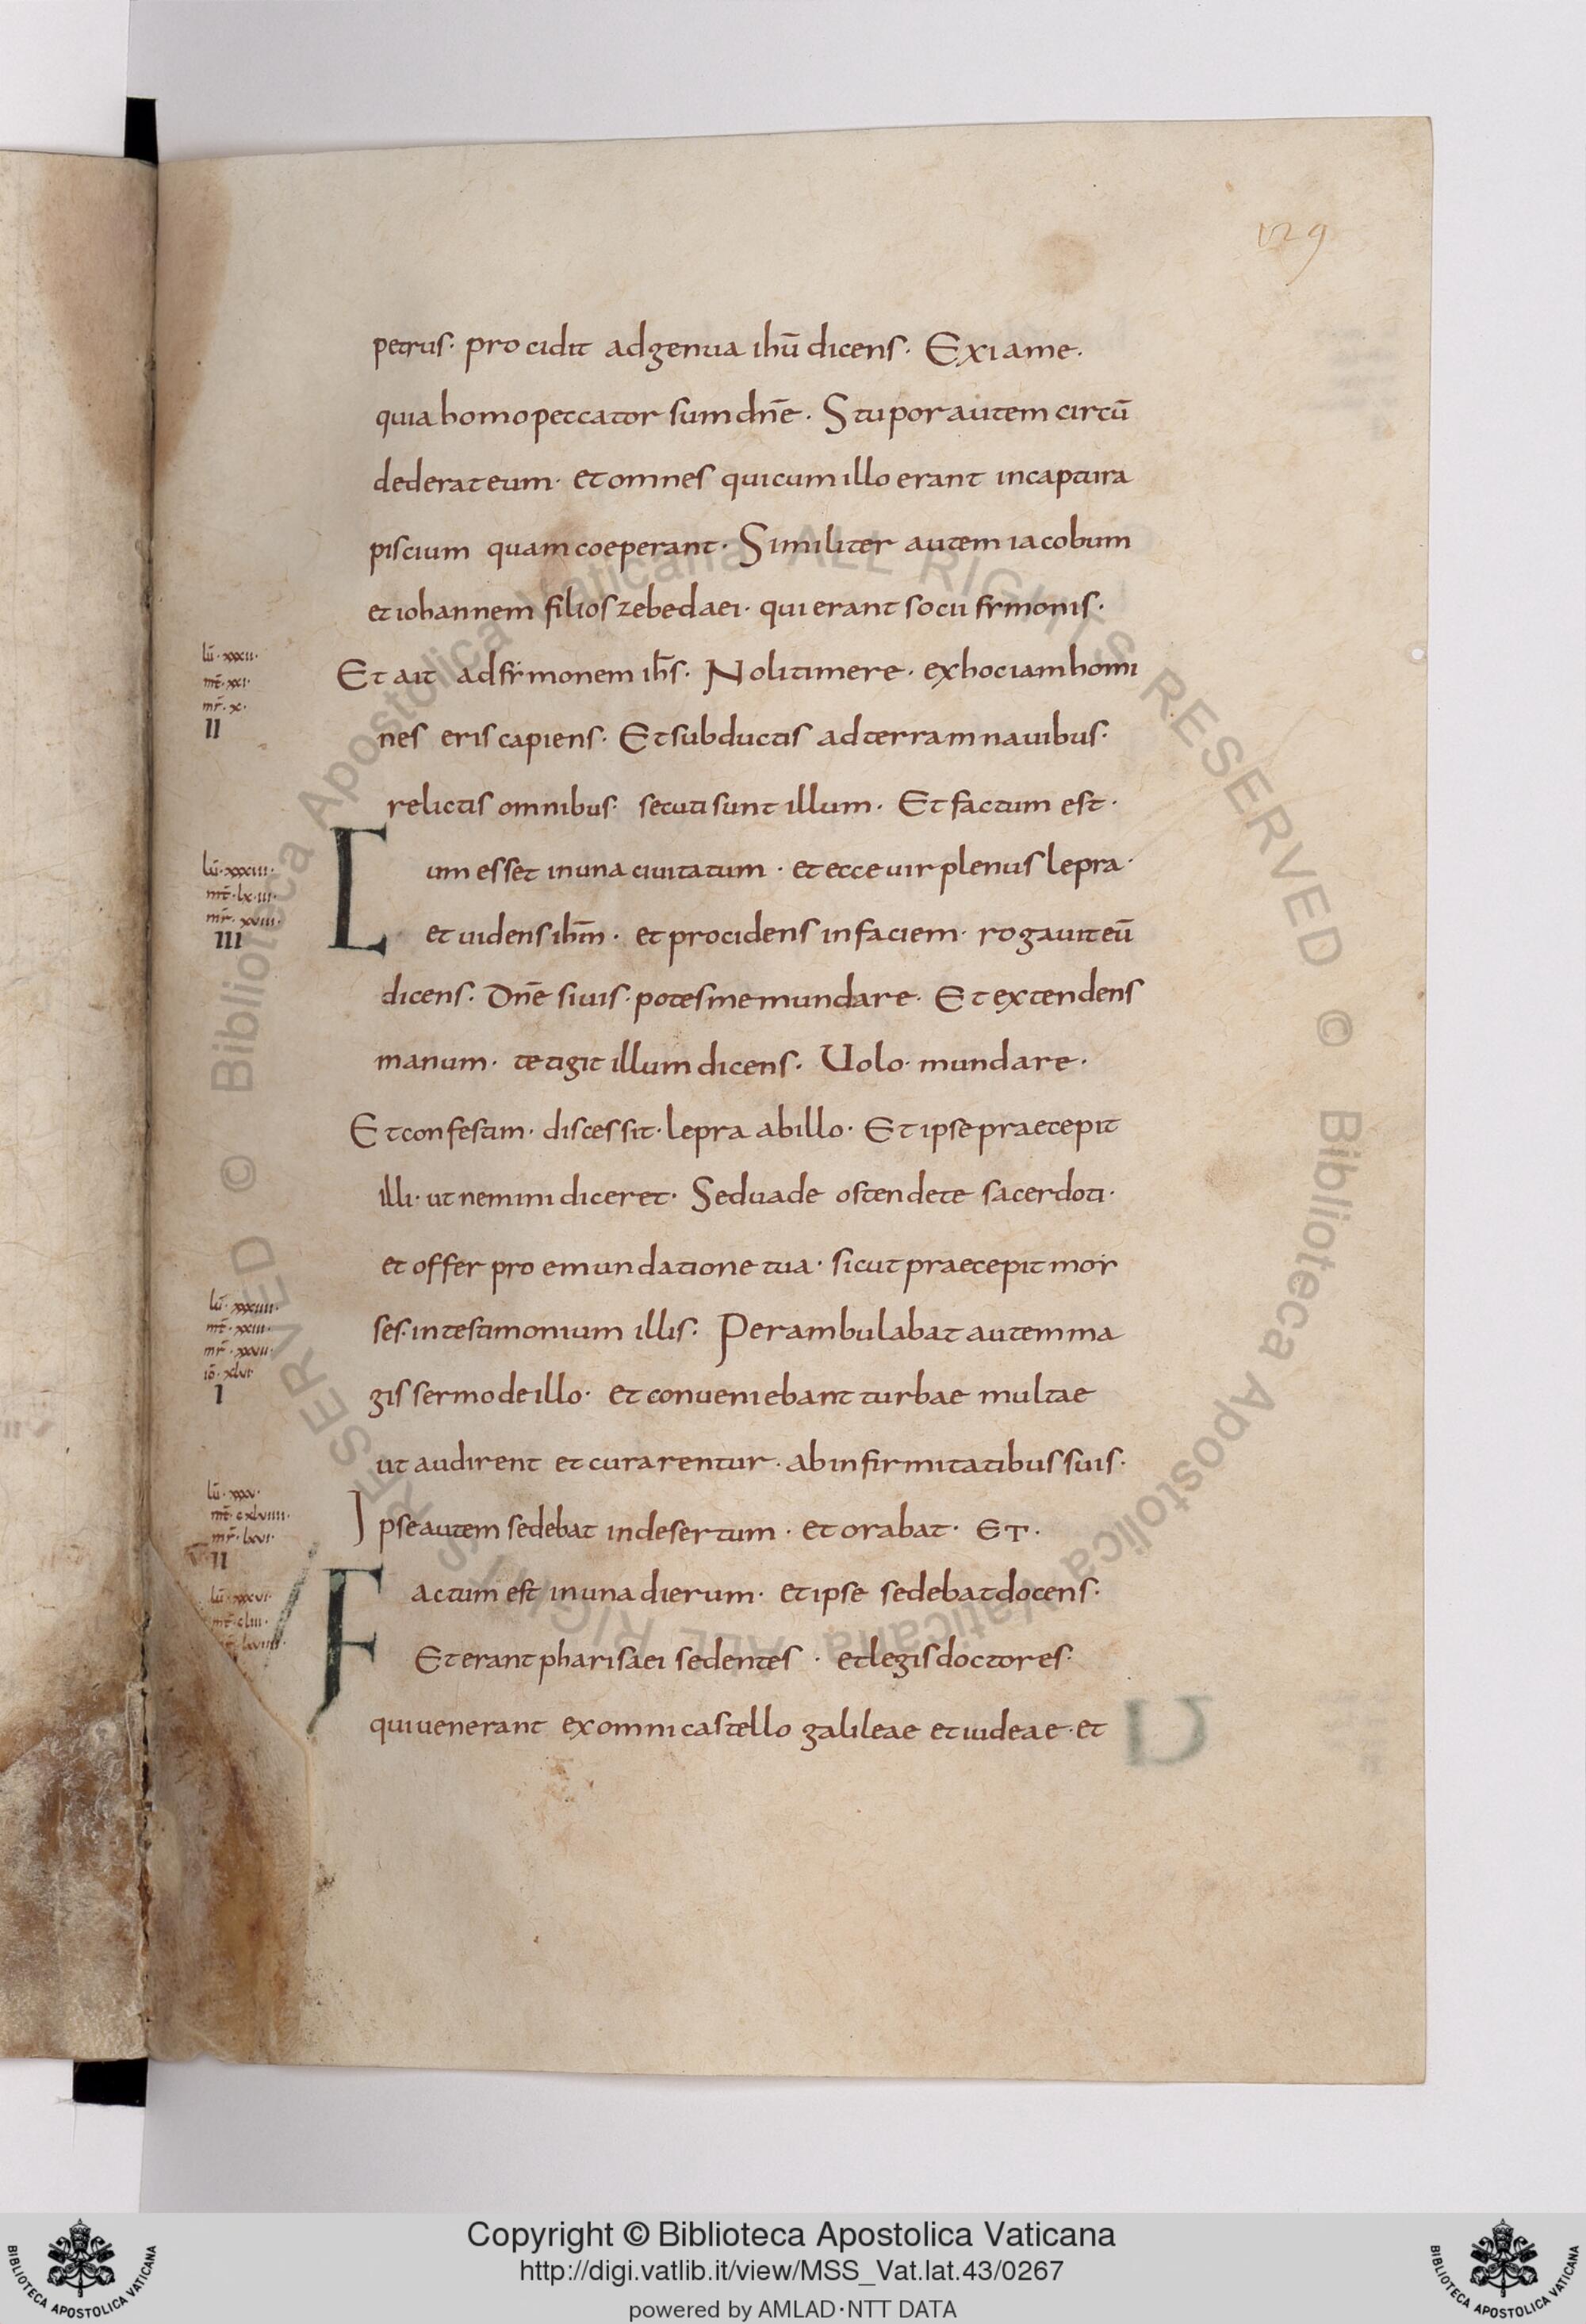 129
petrus· procidit adgenua ihū dicens· Exiame·
quia homo peccator sum dnē· Stupor autem circū
dederat eum· et omnes qui cum illo erant in captura
piscium quam coeperant· Similiter autem iacobum
et iohannem filios zebedaei· qui erant socii simonis·
lū·xxxii·
mt̄·xxi·
mr̄·x·
II
Et ait ad simonem ihs̄· Noli timere· ex hoc iam homi
nes eris capiens· Et subductis ad terram nauibus·
relictis omnibus· secuti sunt illum· Et factum est·
lū·xxxiii·
mt̄·lxiii·
mr̄·xviii·
III
Cum esset in una ciuitatum· et ecce uir plenus lepra·
et uidens ihm̄· et procidens in faciem· rogauit eū
dicens· Dnē si uis· potes me mundare· Et extendens
manum· tetigit illum dicens· Uolo· mundare·
Et confestim· discessit· lepra ab illo· Et ipse praecepit
illi· ut nemini diceret· Sed uade ostende te sacerdoti·
et offer pro emundatione tua· sicut praecepit moy
lū·xxxiiii·
mt̄·xxiii·
mr̄·xxvii·
iō·xlvi·
I
ses· in testimonium illis· Perambulabat autem ma
gis sermo de illo· et conueniebant turbae multae
ut audirent et curarentur· ab infirmitatibus suis·
lū·xxxv·
mt̄·cxlviiii·
mr̄·lxvi·
II
Ipse autem sedebat in desertum· et orabat· ET·
lū·xxxvi·
mt̄·cliii·
Factum est in una dierum· et ipse sedebat docens·
Et erant pharisaei sedentes· et legis doctores·
qui uenerant ex omni castello galileae et iudeae· et
© Biblioteca Apostolica Vaticana ALL RIGHTS RESERVED
© Biblioteca Apostolica Vaticana ALL RIGHTS RESERVED
Copyright © Biblioteca Apostolica Vaticana
http://digi.vatlib.it/view/MSS_Vat.lat.43/0267
powered by AMLAD·NTT DATA
BIBLIOTECA APOSTOLICA VATICANA
BIBLIOTECA APOSTOLICA VATICANA